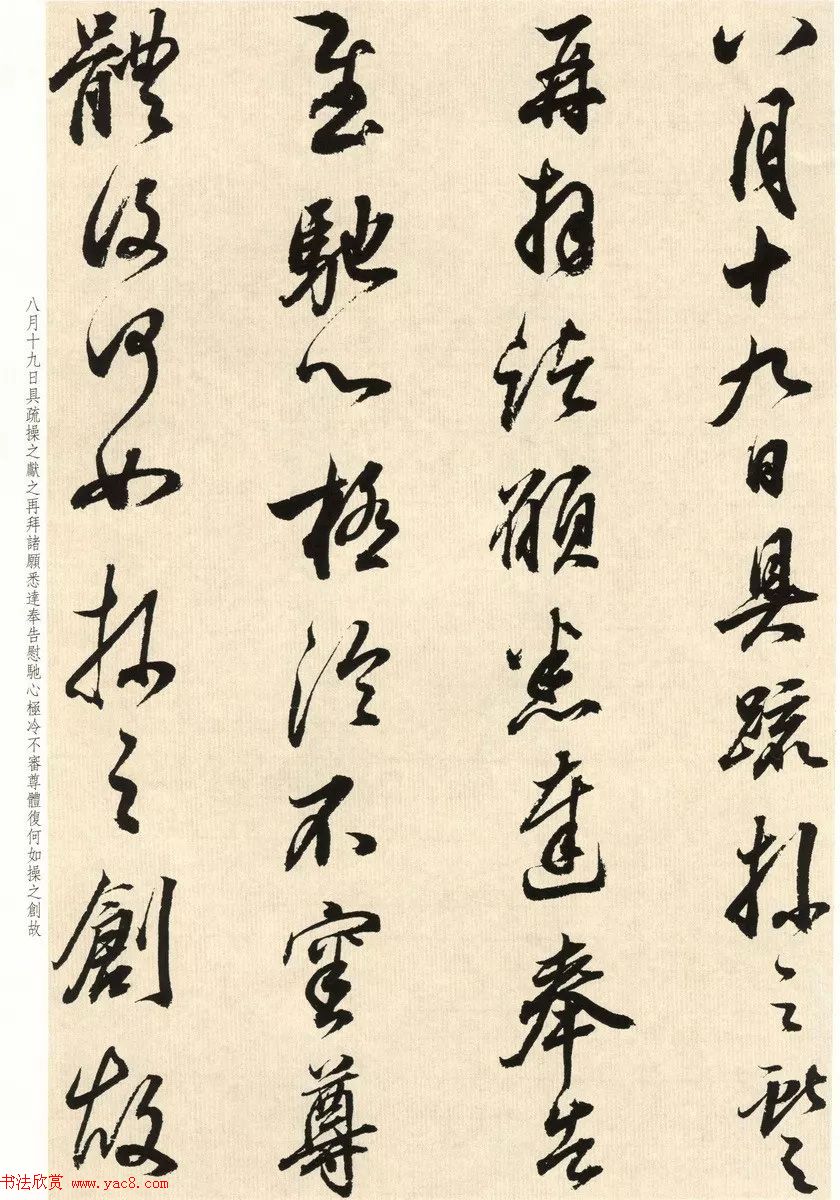 八月十九日具疏操之獻之
再拜諸願悉達奉告
慰馳心極冷不審尊
體復何如操之創故
八月十九日具疏操之獻之再拜諸願悉達奉告慰馳心極冷不審尊體復何如操之創故
书法欣赏 www.yac8.com